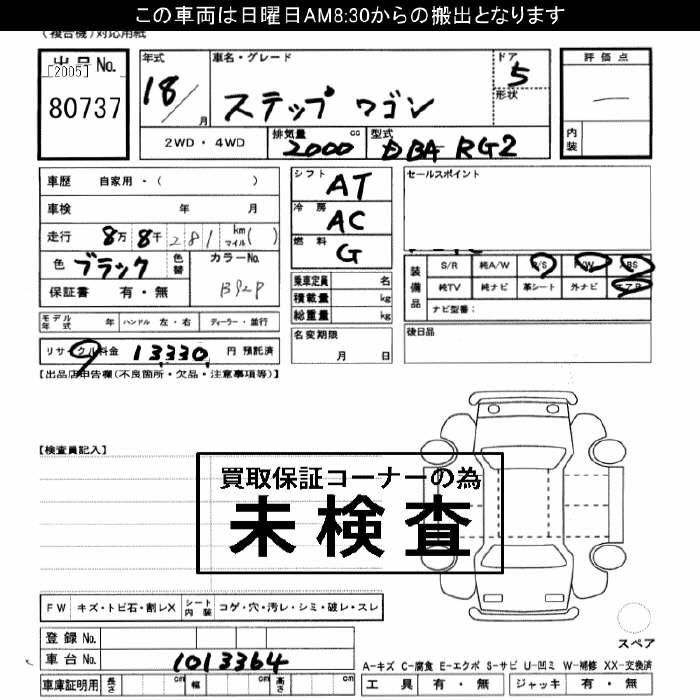 この車両は日曜日AM8:30からの搬出となります
(複合機)対応用紙
出品No.
[2005]
80737
年式
18/月
車名・グレード
ステップ ワゴン
ドア
5
形状
評価点
内装
2WD・4WD
排気量 cc
2000
型式
DBA RG2
車歴 自家用・( )
車検 年 月
走行 8万 8千 281 km マイル( )
色 ブラック 色替
カラーNo.
B92P
保証書 有・無
シフト AT
冷房 AC
燃料 G
乗車定員 名
積載量 kg
総重量 kg
セールスポイント
装備品
S/R 純A/W P/S P/W ABS
純TV 純ナビ 革シート 外ナビ エアB
ナビ型番:
モデル年式 年 ハンドル 左・右 ディーラー・並行
名変期限
月 日
後日品
リサイクル料金 13,330 円 預託済
【出品店申告欄(不良箇所・欠品・注意事項等)】
【検査員記入】
買取保証コーナーの為
未検査
FW キズ・トビ石・割レX シート内装 コゲ・穴・汚レ・シミ・破レ・スレ
スペア
登録No.
車台No. 1013364
A-キズ C-腐食 E-エクボ S-サビ U-凹ミ W-補修 XX-交換済
車庫証明用 長さ cm 幅 cm 高さ cm
工具 有・無 ジャッキ 有・無